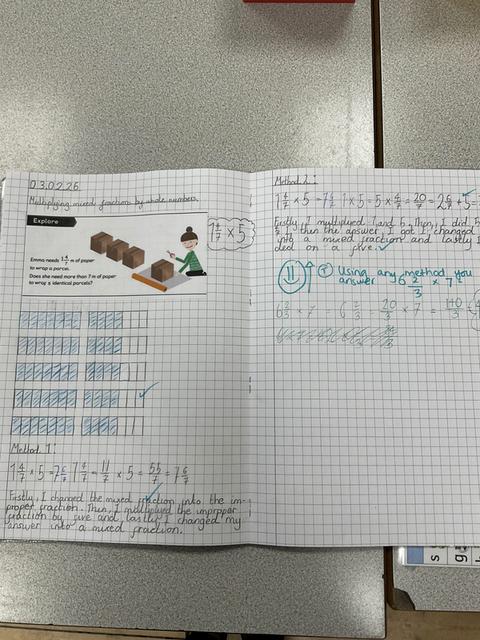 03.02.26
Multiplying mixed fractions by whole numbers.
Explore
Emma needs 1 4/7 m of paper
to wrap a parcel.
Does she need more than 7 m of paper
to wrap 5 identical parcels?
1 4/7 × 5
Method 1:
1 4/7 × 5 = 7 6/7 1 4/7 = 11/7 × 5 = 55/7 = 7 6/7
Firstly, I changed the mixed fraction into the im-
proper fraction. Then, I multiplyed the improper
fraction by five and lastly I changed my
answer into a mixed fraction.
Method 2:
1 4/7 × 5 = 7 6/7 1 × 5 = 5 × 4/7 = 20/7 = 2 6/7 + 5 =
Firstly, I multiplyed 1 and 5. Then, I did 5
I then the answer I got I changed
into a mixed fraction and lastly I
ded on a five.
Using any method you
answer 6 2/3 × 7
6 2/3 × 7 = 6 2/3 = 20/3 × 7 = 140/3 =
s
g